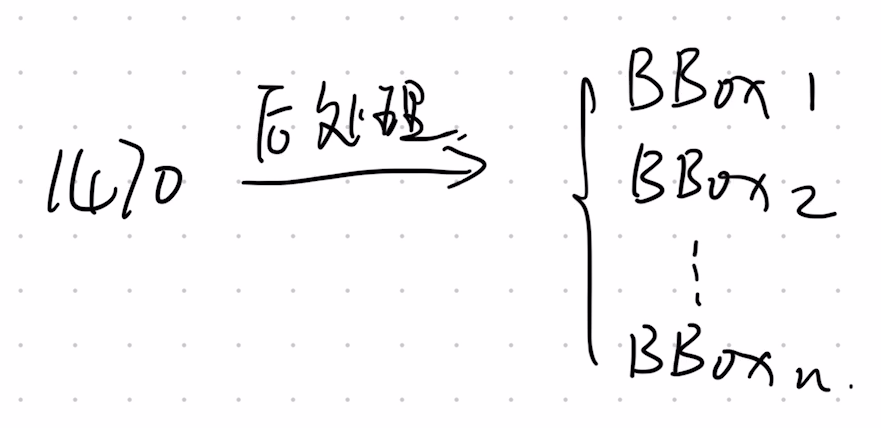 1470 后处理
BBox 1
BBox 2
⋮
BBox n.